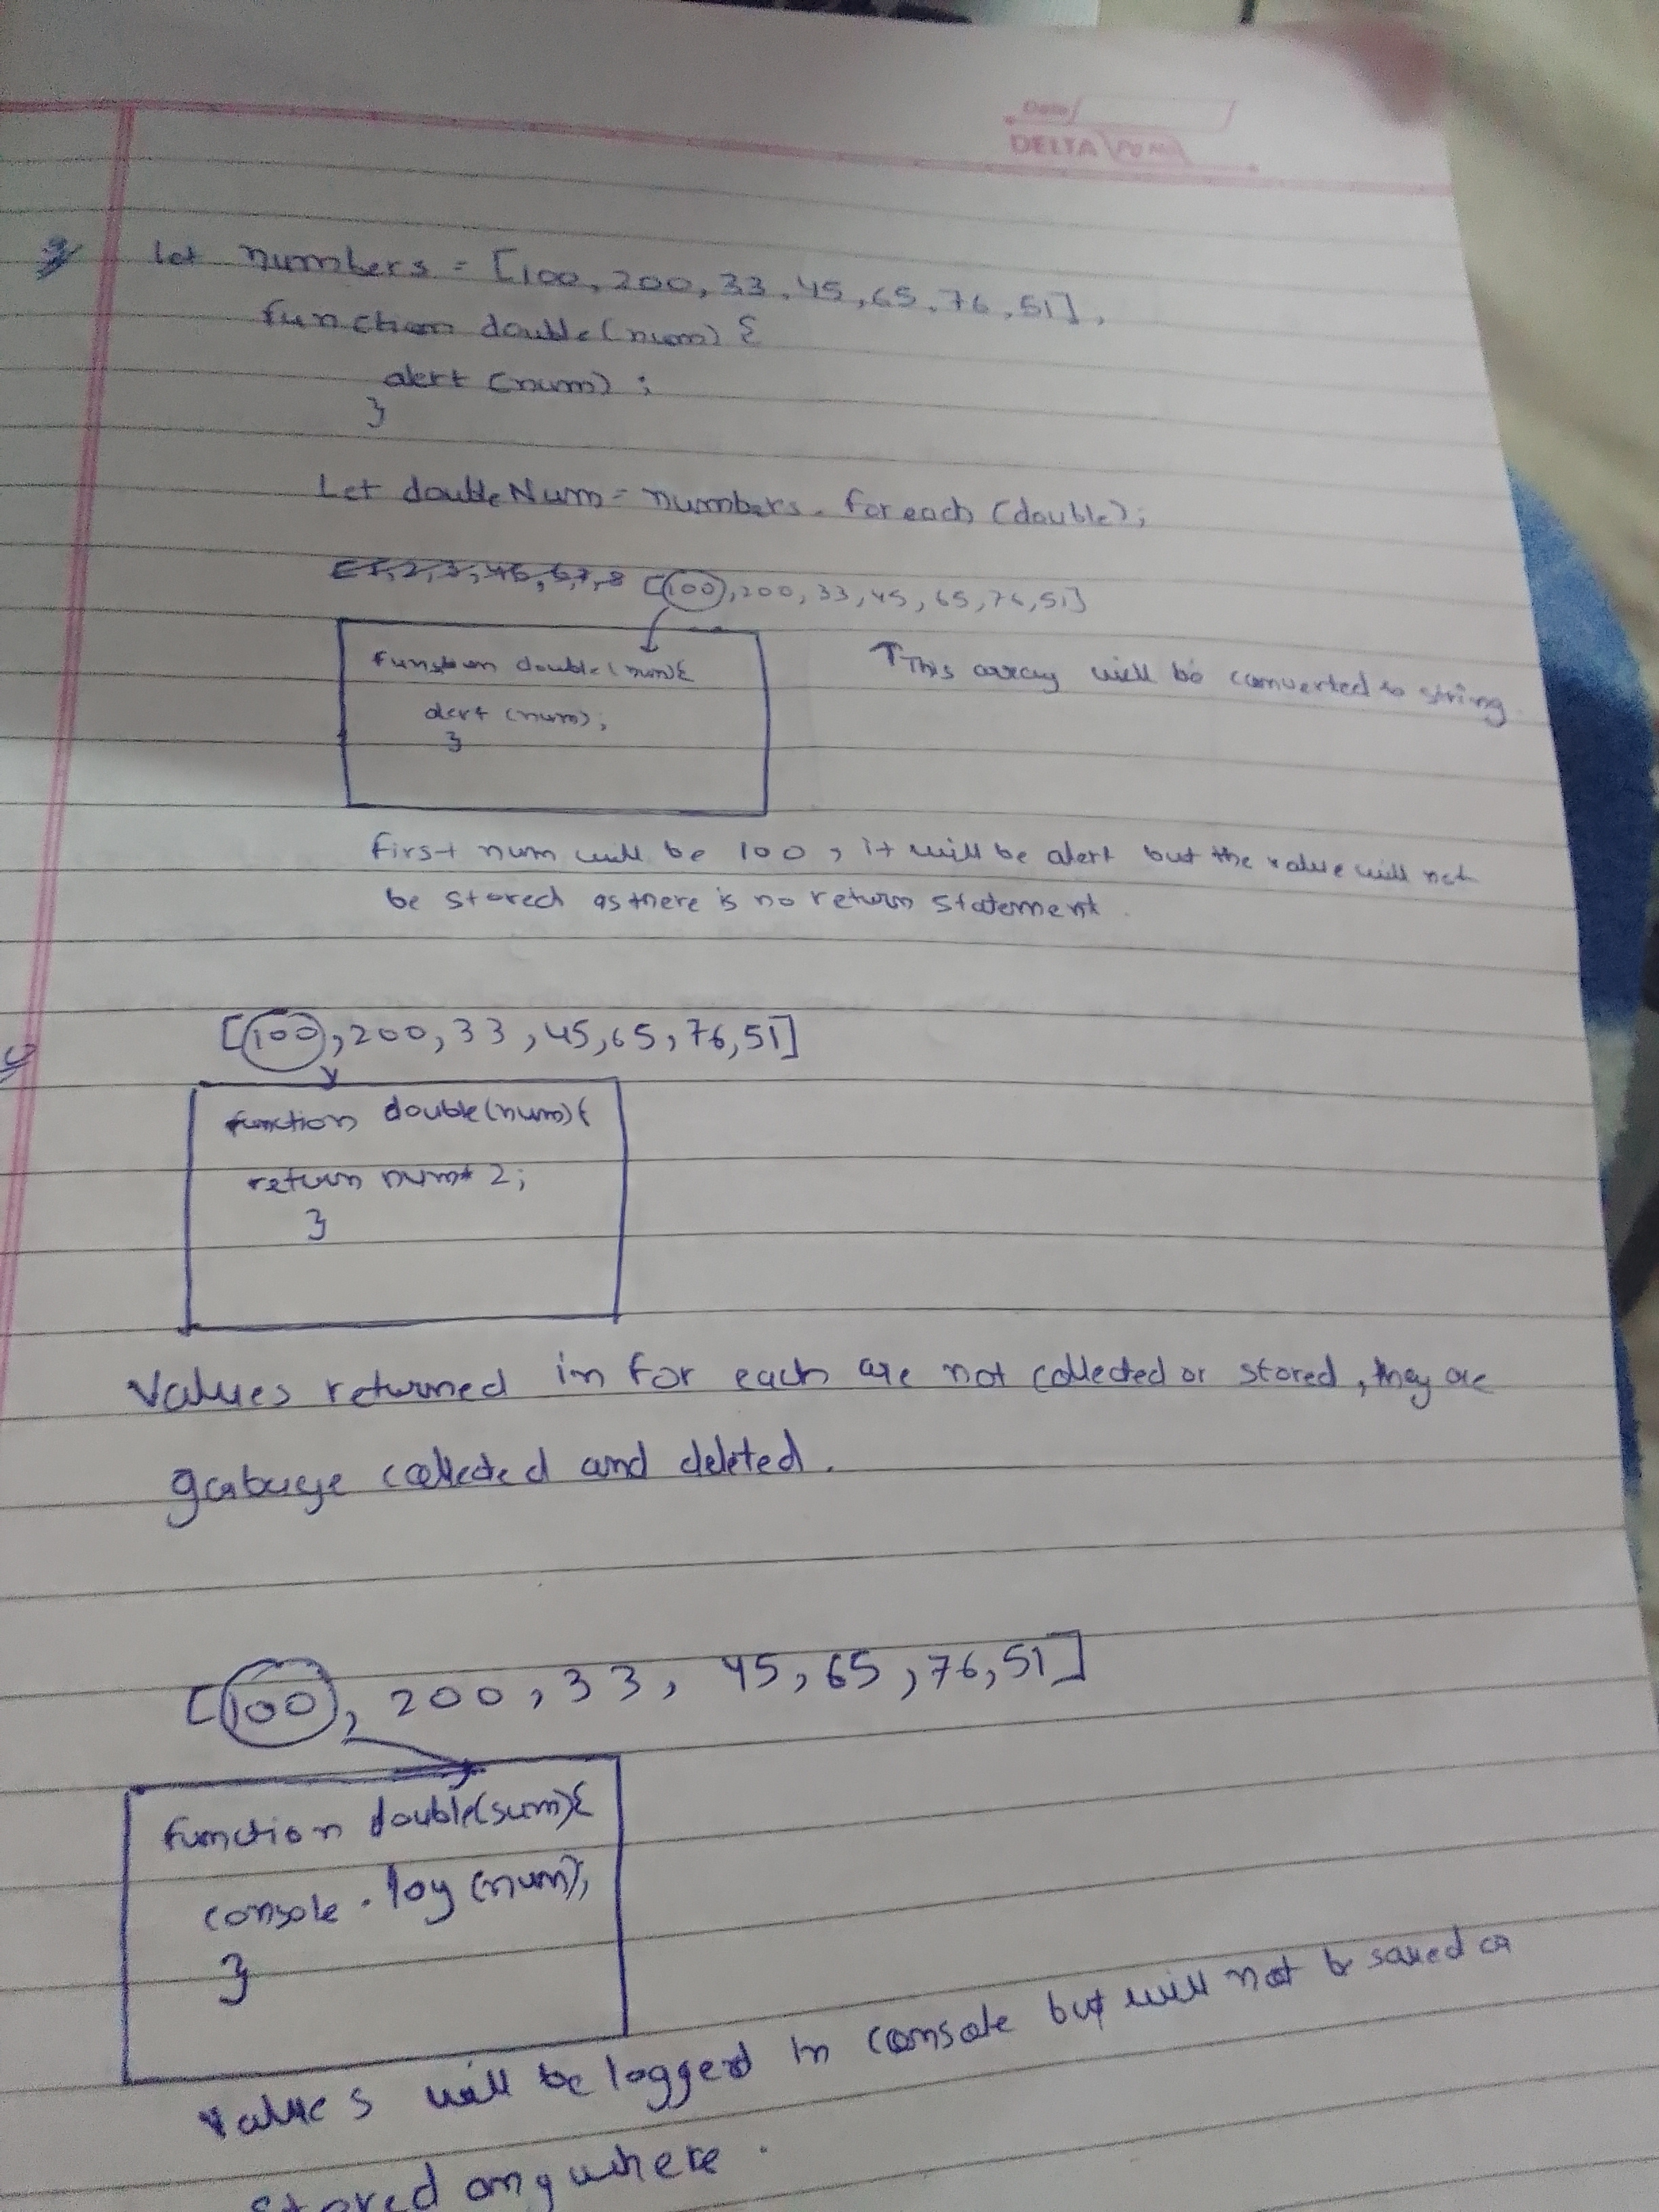 Date
DELTA
3) let numbers = [100, 200, 33, 45, 65, 76, 51],
function double(num) {
alert (num) ;
}
Let doubleNum = numbers. foreach (double);
[100, 200, 33, 45, 65, 76, 51]
function double(num){
alert (num);
}
↑This array will be converted to string
first num will be 100, it will be alert but the value will not
be stored as there is no return statement.
[100, 200, 33, 45, 65, 76, 51]
function double(num){
return num* 2;
}
Values returned in for each are not collected or stored, they are
garbuge collected and deleted.
[100, 200, 33, 45, 65, 76, 51]
function double(sum){
console.log(num);
}
values will be logged in console but will not be saved or
stored anywhere.